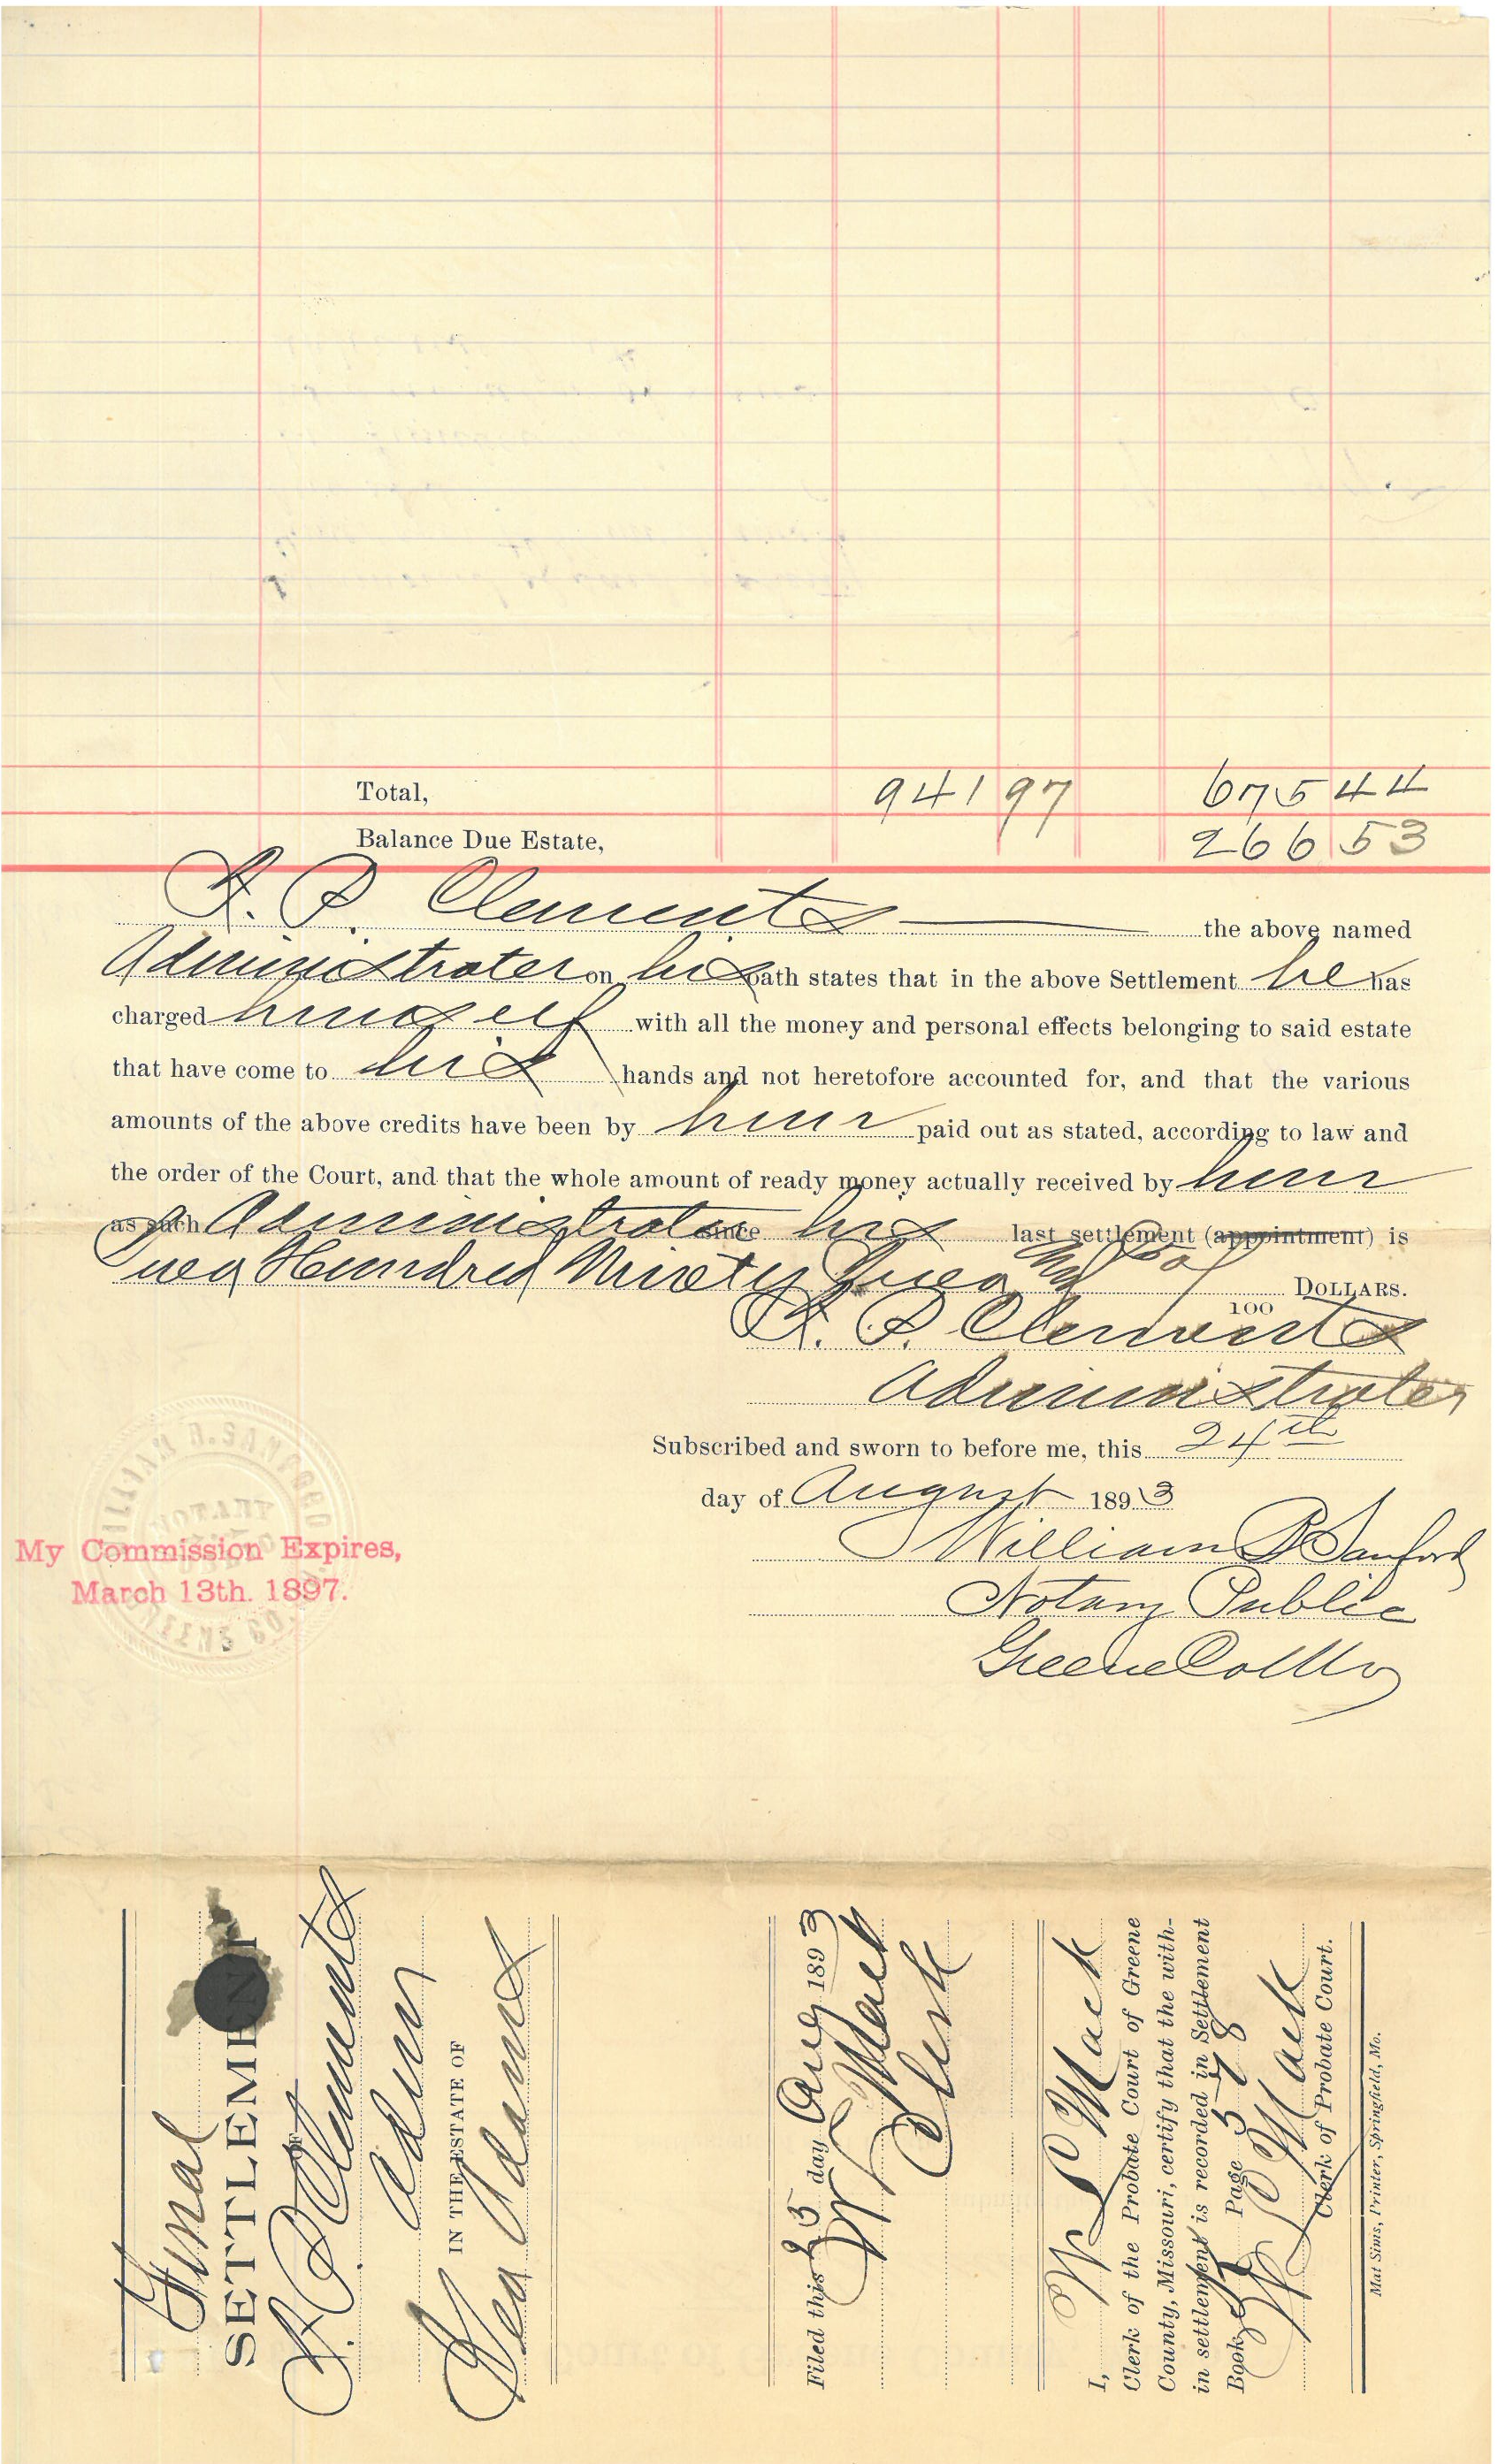 Total, 941 97 675 44
Balance Due Estate, 266 53
R. P. Clements the above named
Administrator on his oath states that in the above Settlement he has
charged himself with all the money and personal effects belonging to said estate
that have come to his hands and not heretofore accounted for, and that the various
amounts of the above credits have been by him paid out as stated, according to law and
the order of the Court, and that the whole amount of ready money actually received by him
as such Administrator since his last settlement (appointment) is
Two Hundred Ninety Two DOLLARS.
100
R. P. Clements
Administrator
Subscribed and sworn to before me, this 24th
day of August 1893
William R Sanford
Notary Public
Greene Co Mo
WILLIAM R. SANFORD
NOTARY
GREENE CO.
My Commission Expires,
March 13th. 1897.
Final
SETTLEMENT
OF
R. P. Clements
Adm
IN THE ESTATE OF
Geo Adams
Filed this 25 day Aug 1893
W L Mack
Clerk
I, W L Mack
Clerk of the Probate Court of Greene
County, Missouri, certify that the with-
in settlement is recorded in Settlement
Book Page 578
W L Mack
Clerk of Probate Court.
Mat Sims, Printer, Springfield, Mo.